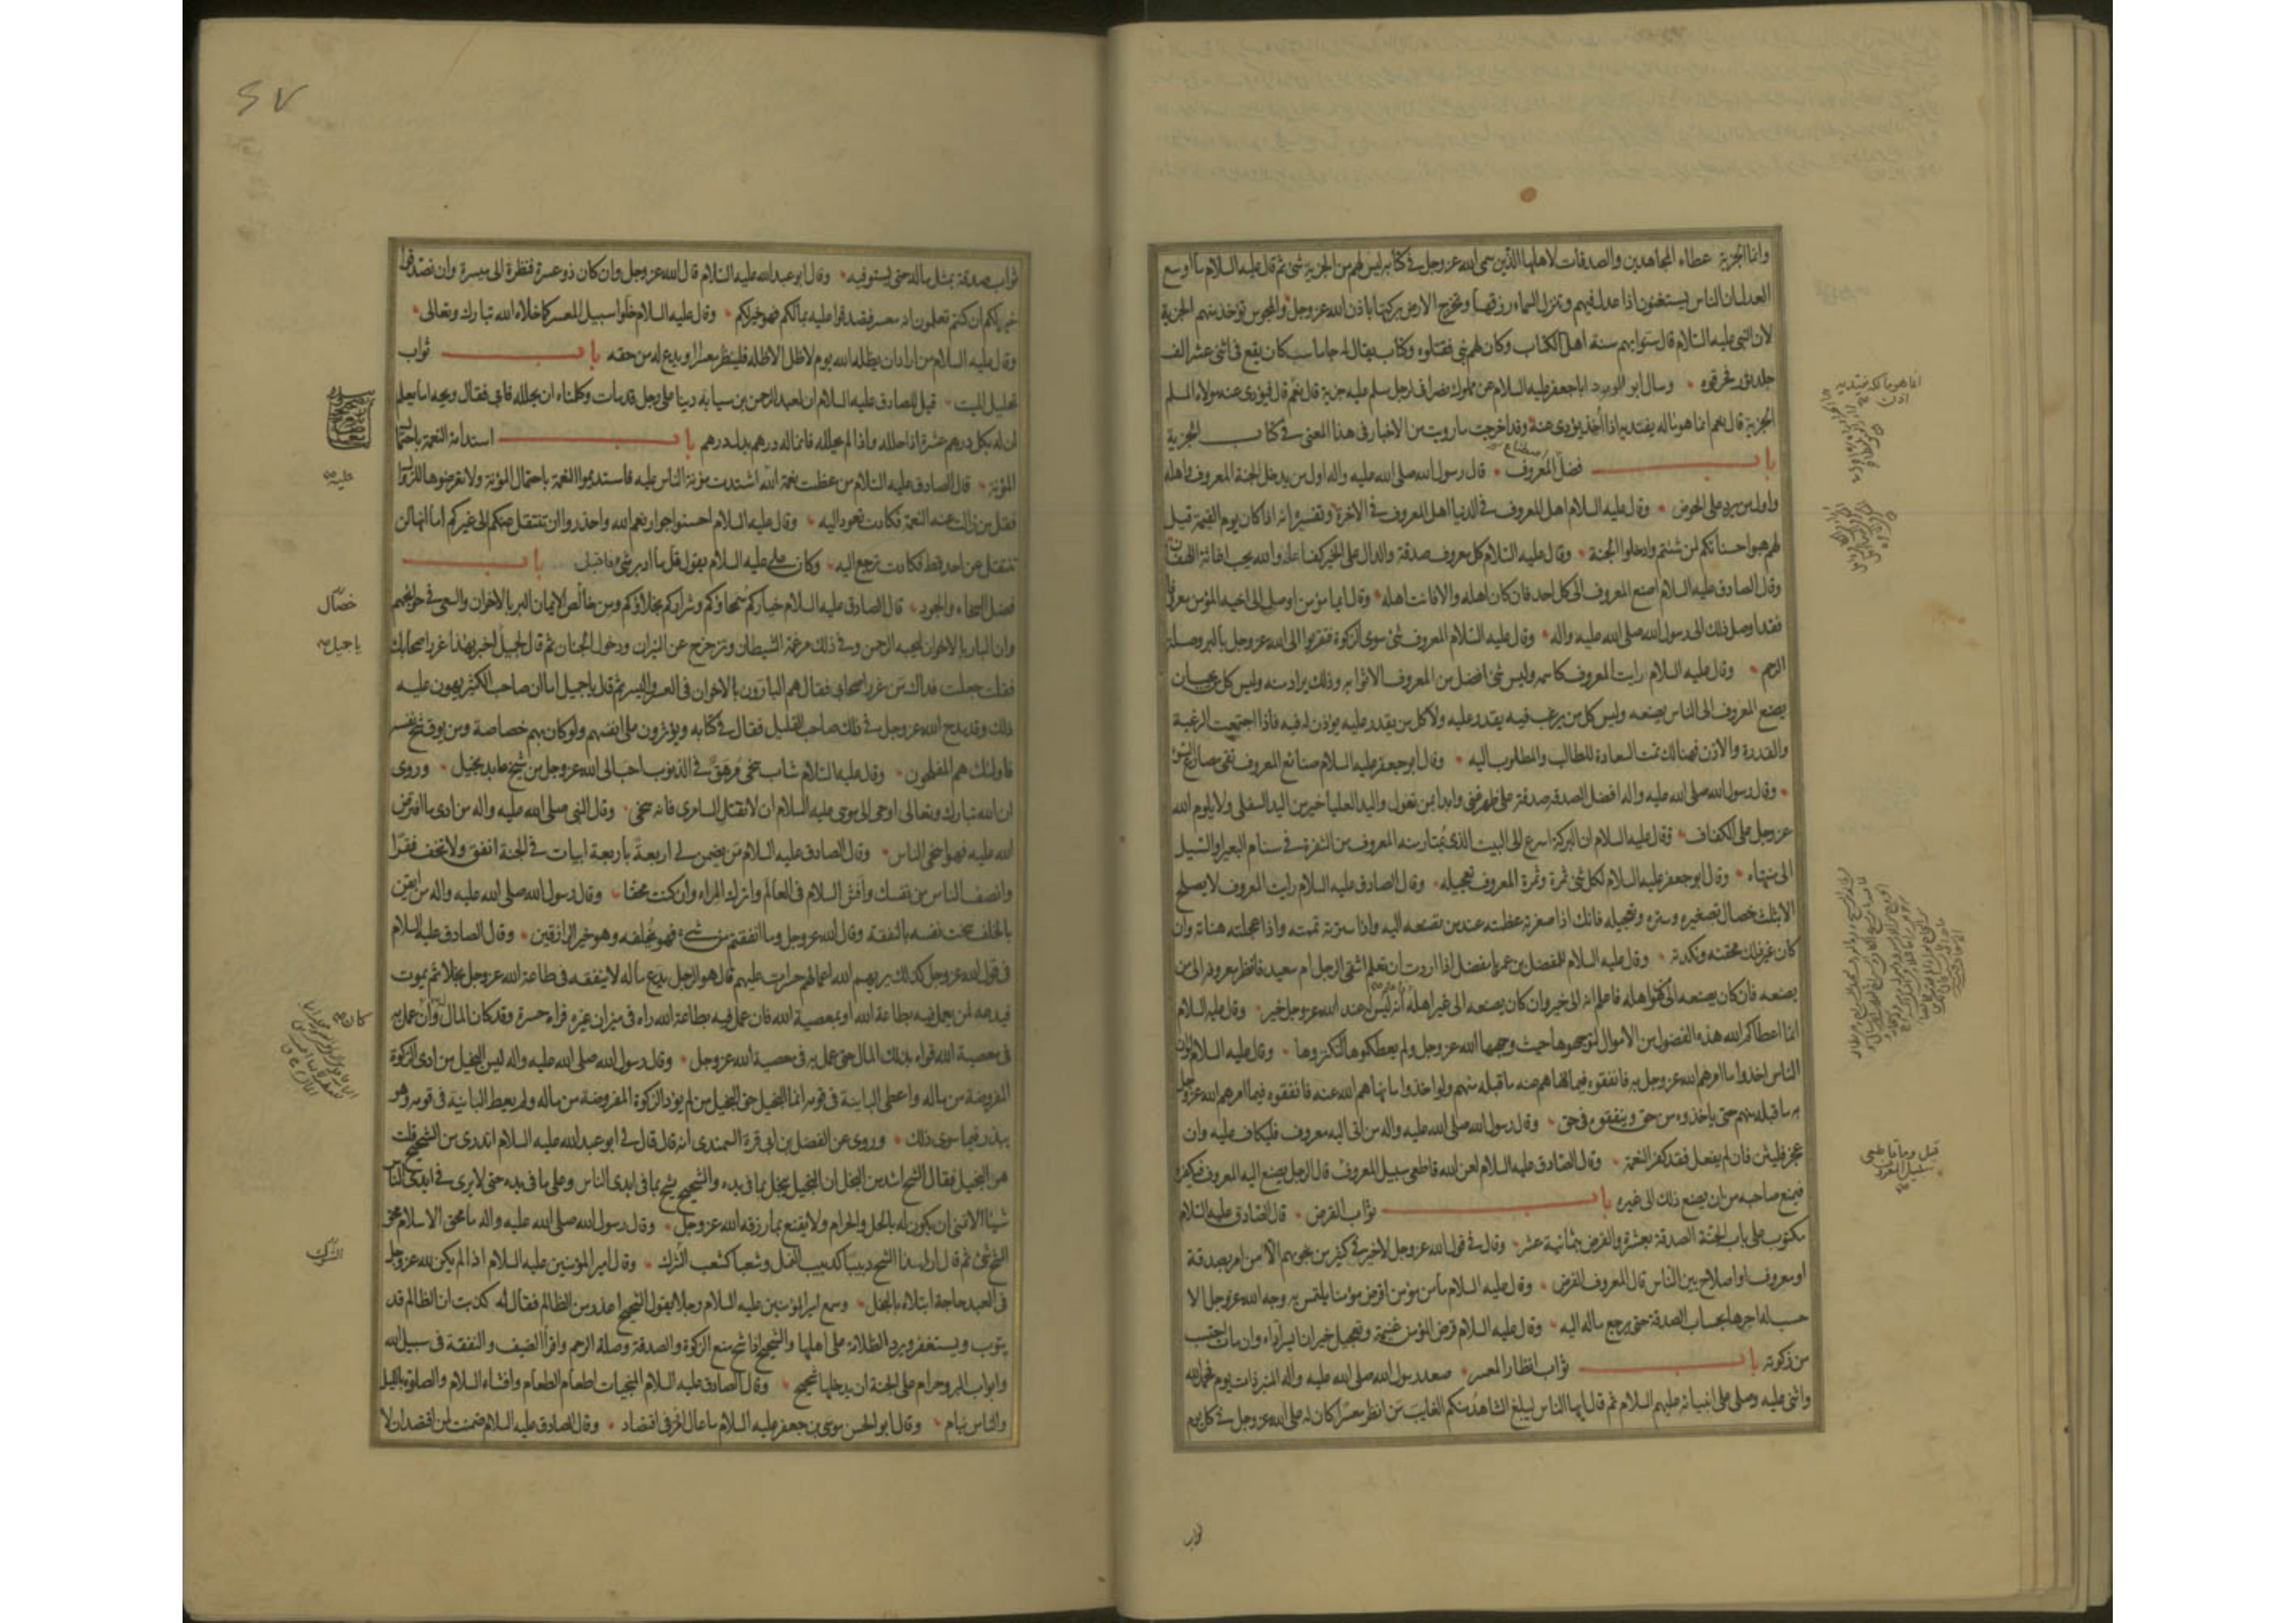 وانما الجزية عطاء المجاهدين والصدقات لاهلها الذين سمى الله عز وجل في كتابه ليس لهم من الجزية شئ ثم قال عليه السلام ما اوسع
العدل ان الناس يستغنون اذا عدل فيهم وتنزل السماء رزقها وتخرج الارض بركتها باذن الله عز وجل والمجوس تؤخذ منهم الجزية
لان النبي عليه السلام قال سنوا بهم سنة اهل الكتاب وكان لهم نبي فقتلوه وكتاب يقال له جاماسب كان يقع في اثنى عشر الف
جلد ثور فحرقوه وسال ابو الورد ابا جعفر عليه السلام عن مملوك نصراني لرجل مسلم عليه جزية قال نعم قال فيؤدى عنه مولاه المسلم
الجزية قال نعم انما هو ماله يفتديه اذا اخذ يؤدى عنه وقد اخرجت ما رويت من الاخبار في هذا المعنى في كتاب الجزية
باب فضل اصطناع المعروف قال رسول الله صلى الله عليه واله اول من يدخل الجنة المعروف واهله
واول من يرد على الحوض وقال عليه السلام اهل المعروف في الدنيا اهل المعروف في الاخرة وتفسيره انه اذا كان يوم القيمة قيل
لهم هبوا حسناتكم لمن شئتم وادخلوا الجنة وقال عليه السلام كل معروف صدقة والدال على الخير كفاعله والله يحب اغاثة اللهفان
وقال الصادق عليه السلام اصنع المعروف الى كل احد فان كان اهله والا فانت اهله وقال ايما مؤمن اوصل الى اخيه المؤمن معروفا
فقد اوصل ذلك الى رسول الله صلى الله عليه واله وقال عليه السلام المعروف شئ سوى الزكوة فتقربوا الى الله عز وجل بالبر وصلة
الرحم وقال عليه السلام رايت المعروف كاسمه وليس شئ افضل من المعروف الا ثوابه وذلك يراد منه وليس كل من يحب ان
يصنع المعروف الى الناس يصنعه وليس كل من يرغب فيه يقدر عليه ولا كل من يقدر عليه يؤذن له فيه فاذا اجتمعت الرغبة
والقدرة والاذن فهنالك تمت السعادة للطالب والمطلوب اليه وقال ابو جعفر عليه السلام صنائع المعروف تقى مصارع السوء
وقال رسول الله صلى الله عليه واله افضل الصدقة صدقة على ظهر غنى وابدا بمن تعول واليد العليا خير من اليد السفلى ولا يلوم الله
عز وجل على الكفاف وقال عليه السلام ان البركة اسرع الى البيت الذى يمتار منه المعروف من الشفرة في سنام البعير والسيل
الى منتهاه وقال ابو جعفر عليه السلام لكل شئ ثمرة وثمرة المعروف تعجيله وقال الصادق عليه السلام رايت المعروف لا يصلح
الا بثلث خصال تصغيره وستره وتعجيله فانك اذا صغرته عظمته عند من تصنعه اليه واذا سترته تممته واذا عجلته هناته وان
كان غير ذلك محقته ونكدته وقال عليه السلام للمفضل بن عمر يا مفضل اذا اردت ان تعلم اشقى الرجل ام سعيد فانظر معروفه الى من
يصنعه فان كان يصنعه الى من هو اهله فاعلم انه الى خير وان كان يصنعه الى غير اهله فاعلم انه ليس له عند الله عز وجل خير وقال عليه السلام
انما اعطاكم الله هذه الفضول من الاموال لتوجهوها حيث وجهها الله عز وجل ولم يعطكموها لتكنزوها وقال عليه السلام لو ان
الناس اخذوا ما امرهم الله عز وجل به فانفقوه فيما نهاهم عنه ما قبله منهم ولو اخذوا ما نهاهم الله عنه فانفقوه فيما امرهم الله عز وجل
به ما قبله منهم حتى ياخذوه من حق وينفقوه في حق وقال رسول الله صلى الله عليه واله من اتى اليه معروف فليكاف عليه وان
عجز فليثن فان لم يفعل فقد كفر النعمة وقال الصادق عليه السلام لعن الله قاطعى سبيل المعروف قال الرجل يصنع اليه المعروف فيكفره
فيمنع صاحبه من ان يصنع ذلك الى غيره باب ثواب القرض قال الصادق عليه السلام
مكتوب على باب الجنة الصدقة بعشرة والقرض بثمانية عشر وقال في قول الله عز وجل لا خير في كثير من نجويهم الا من امر بصدقة
او معروف او اصلاح بين الناس قال المعروف القرض وقال عليه السلام ما من مؤمن اقرض مؤمنا يلتمس به وجه الله عز وجل الا
حسب له اجرها بحساب الصدقة حتى يرجع ماله اليه وقال عليه السلام قرض المؤمن غنيمة وتعجيل خير ان ايسر اداه وان مات احتسب
من زكوته باب ثواب انظار المعسر صعد رسول الله صلى الله عليه واله المنبر ذات يوم فحمد الله
واثنى عليه وصلى على انبيائه عليهم السلام ثم قال ايها الناس ليبلغ الشاهد منكم الغايب من انظر معسرا كان له على الله عز وجل في كل يوم
ثواب
قيل وما قاطعى سبيل المعروف
٤٧
ثواب صدقة بمثل ماله حتى يستوفيه وقال ابو عبد الله عليه السلام قال الله عز وجل وان كان ذو عسرة فنظرة الى ميسرة وان تصدقوا
خير لكم ان كنتم تعلمون انه معسر فتصدقوا عليه بمالكم فهو خير لكم وقال عليه السلام خلوا سبيل المعسر كما خلاه الله تبارك وتعالى
وقال عليه السلام من اراد ان يظله الله يوم لا ظل الا ظله فلينظر معسرا او يدع له من حقه باب ثواب
تحليل الميت قيل للصادق عليه السلام ان لعبد الرحمن بن سيابة دينا على رجل قد مات وكلمناه ان يحلله فابى فقال ويحه اما يعلم
ان له بكل درهم عشرة اذا حلله واذا لم يحلله فانما له درهم بدل درهم باب استدامة النعمة باحتمال
المؤنة قال الصادق عليه السلام من عظمت نعمة الله اشتدت مؤنة الناس عليه فاستديموا النعمة باحتمال المؤنة ولا تعرضوها للزوال
فقل من زالت عنه النعمة فكادت تعود اليه وقال عليه السلام احسنوا جوار نعم الله واحذروا ان تنتقل عنكم الى غيركم اما انها لن
تنتقل عن احد قط فكادت ترجع اليه وكان على عليه السلام يقول قل ما ادبر شئ فاقبل باب
فضل السخاء والجود قال الصادق عليه السلام خياركم سمحاؤكم وشراركم بخلاؤكم ومن خالص الايمان البر بالاخوان والسعى في حوائجهم
وان البار بالاخوان ليحبه الرحمن وفي ذلك مرغمة الشيطان وتزحزح عن النيران ودخول الجنان ثم قال لجميل اخبر بهذا غرر اصحابك
فقلت جعلت فداك من غرر اصحابي فقال هم البارون بالاخوان في العسر واليسر ثم قال يا جميل اما ان صاحب الكثير يهون عليه
ذلك وقد مدح الله عز وجل في ذلك صاحب القليل فقال في كتابه ويؤثرون على انفسهم ولو كان بهم خصاصة ومن يوق شح نفسه
فاولئك هم المفلحون وقال عليه السلام شاب سخى مرهق في الذنوب احب الى الله عز وجل من شيخ عابد بخيل وروى
ان الله تبارك وتعالى اوحى الى موسى عليه السلام ان لا تقتل السامرى فانه سخى وقال النبي صلى الله عليه واله من ادى ما افترض
الله عليه فهو اسخى الناس وقال الصادق عليه السلام من يضمن لى اربعة باربعة ابيات في الجنة انفق ولا تخف فقرا
وانصف الناس من نفسك وافش السلام في العالم واترك المراء وان كنت محقا وقال رسول الله صلى الله عليه واله من ايقن
بالخلف سخت نفسه بالنفقة وقال الله عز وجل وما انفقتم من شئ فهو يخلفه وهو خير الرازقين وقال الصادق عليه السلام
في قول الله عز وجل كذلك يريهم الله اعمالهم حسرات عليهم قال هو الرجل يدع ماله لا ينفقه في طاعة الله عز وجل بخلا ثم يموت
فيدعه لمن يعمل فيه بطاعة الله او بمعصية الله فان عمل فيه بطاعة الله راه في ميزان غيره فراه حسرة وقد كان المال له وان عمل به
في معصية الله قواه بذلك المال حتى عمل به في معصية الله عز وجل وقال رسول الله صلى الله عليه واله ليس البخيل من ادى الزكوة
المفروضة من ماله واعطى الباينة في قومه انما البخيل حق البخيل من لم يؤد الزكوة المفروضة من ماله ولم يعط الباينة في قومه وهو
يبذر فيما سوى ذلك وروى عن الفضل بن ابي قرة السمندى انه قال قال لى ابو عبد الله عليه السلام اتدرى من الشحيح قلت
هو البخيل فقال الشح اشد من البخل ان البخيل يبخل بما في يده والشحيح يشح بما في ايدى الناس وعلى ما في يده حتى لا يرى في ايدى الناس
شيئا الا تمنى ان يكون له بالحل والحرام ولا يقنع بما رزقه الله عز وجل وقال رسول الله صلى الله عليه واله ما محق الاسلام محق
الشح شئ ثم قال ان لهذا الشح دبيبا كدبيب النمل وشعبا كشعب الشرك وقال امير المؤمنين عليه السلام اذا لم يكن لله عز وجل
في العبد حاجة ابتلاه بالبخل وسمع امير المؤمنين عليه السلام رجلا يقول الشحيح اعذر من الظالم فقال له كذبت ان الظالم قد
يتوب ويستغفر ويرد الظلامة على اهلها والشحيح اذا شح منع الزكوة والصدقة وصلة الرحم واقراء الضيف والنفقة في سبيل الله
وابواب البر وحرام على الجنة ان يدخلها شحيح وقال الصادق عليه السلام المنجيات اطعام الطعام وافشاء السلام والصلوة بالليل
والناس نيام وقال ابو الحسن موسى بن جعفر عليه السلام ما عال امرؤ في اقتصاد وقال الصادق عليه السلام ضمنت لمن اقتصد ان لا
عليه
خصال
يا جميل
كان
الشرك